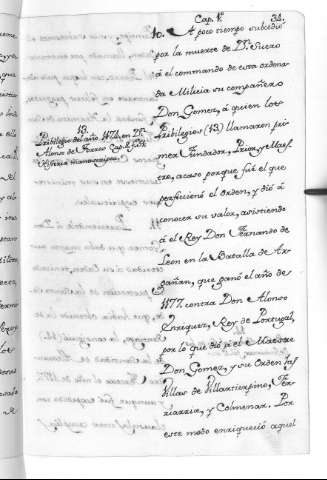 Cap. V.
34.
10. A poco tiempo subcedió
por la muerte de Dn. Suero
á el commando de esta ordena-
da Milicia su compañero
Don Gomez, á quien los
Pribilegios (13) llamaron pri-
mer Fundador, Prior, y Maes-
tre, acaso porque fué el que
perfeccionó el orden, y dió á
conocer su valor, asistiendo
á el Rey Don Fernando de
Leon en la Batalla de Ar-
gañan, que ganó el año de
1177. contra Don Alonso
Enriquez, Rey de Portugal,
por lo que dió á el Maestre
Don Gomez, y su Orden las
Villas de Villarturpin, Fer-
radarriz, y Colmenar. Por
este modo enriqueció aquel
13.
Pribilegios del año 1174. en Dn.
Alonso de Torres Cap. 2. fol.
Historia manuscripta.